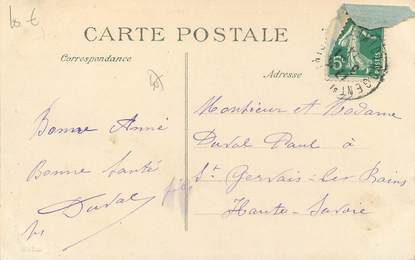 CARTE POSTALE
Correspondance
Adresse
10 €
5c
Bonne Anné
Bonne Santé
Duval fils
Monsieur et Madame
Duval Paul à
St Gervais-les-Bains
Haute-Savoie